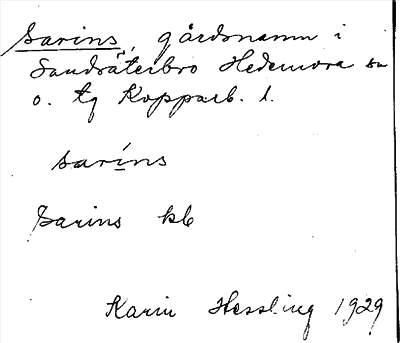 Sarins, gårdsnamn i
Sandsäterbro Hedemora sn
o. tg Kopparb. l.
saríns
Sarins kb
Karin Hessling 1929